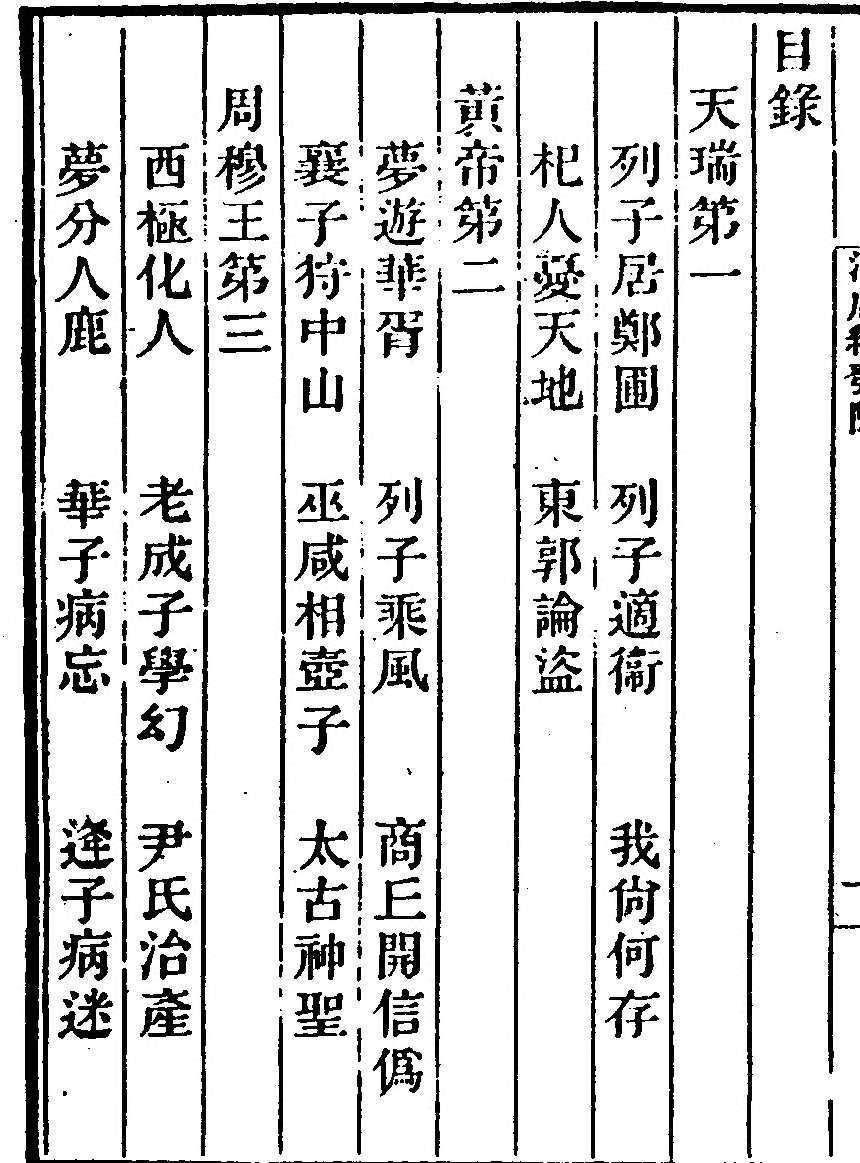 目錄
天瑞第一
列子居鄭圃　列子適衞　我尙何存
杞人憂天地　東郭論盜
黃帝第二
夢遊華胥　列子乘風　商丘開信僞
襄子狩中山　巫咸相壺子　太古神聖
周穆王第三
西極化人　老成子學幻　尹氏治產
夢分人鹿　華子病忘　逄子病迷